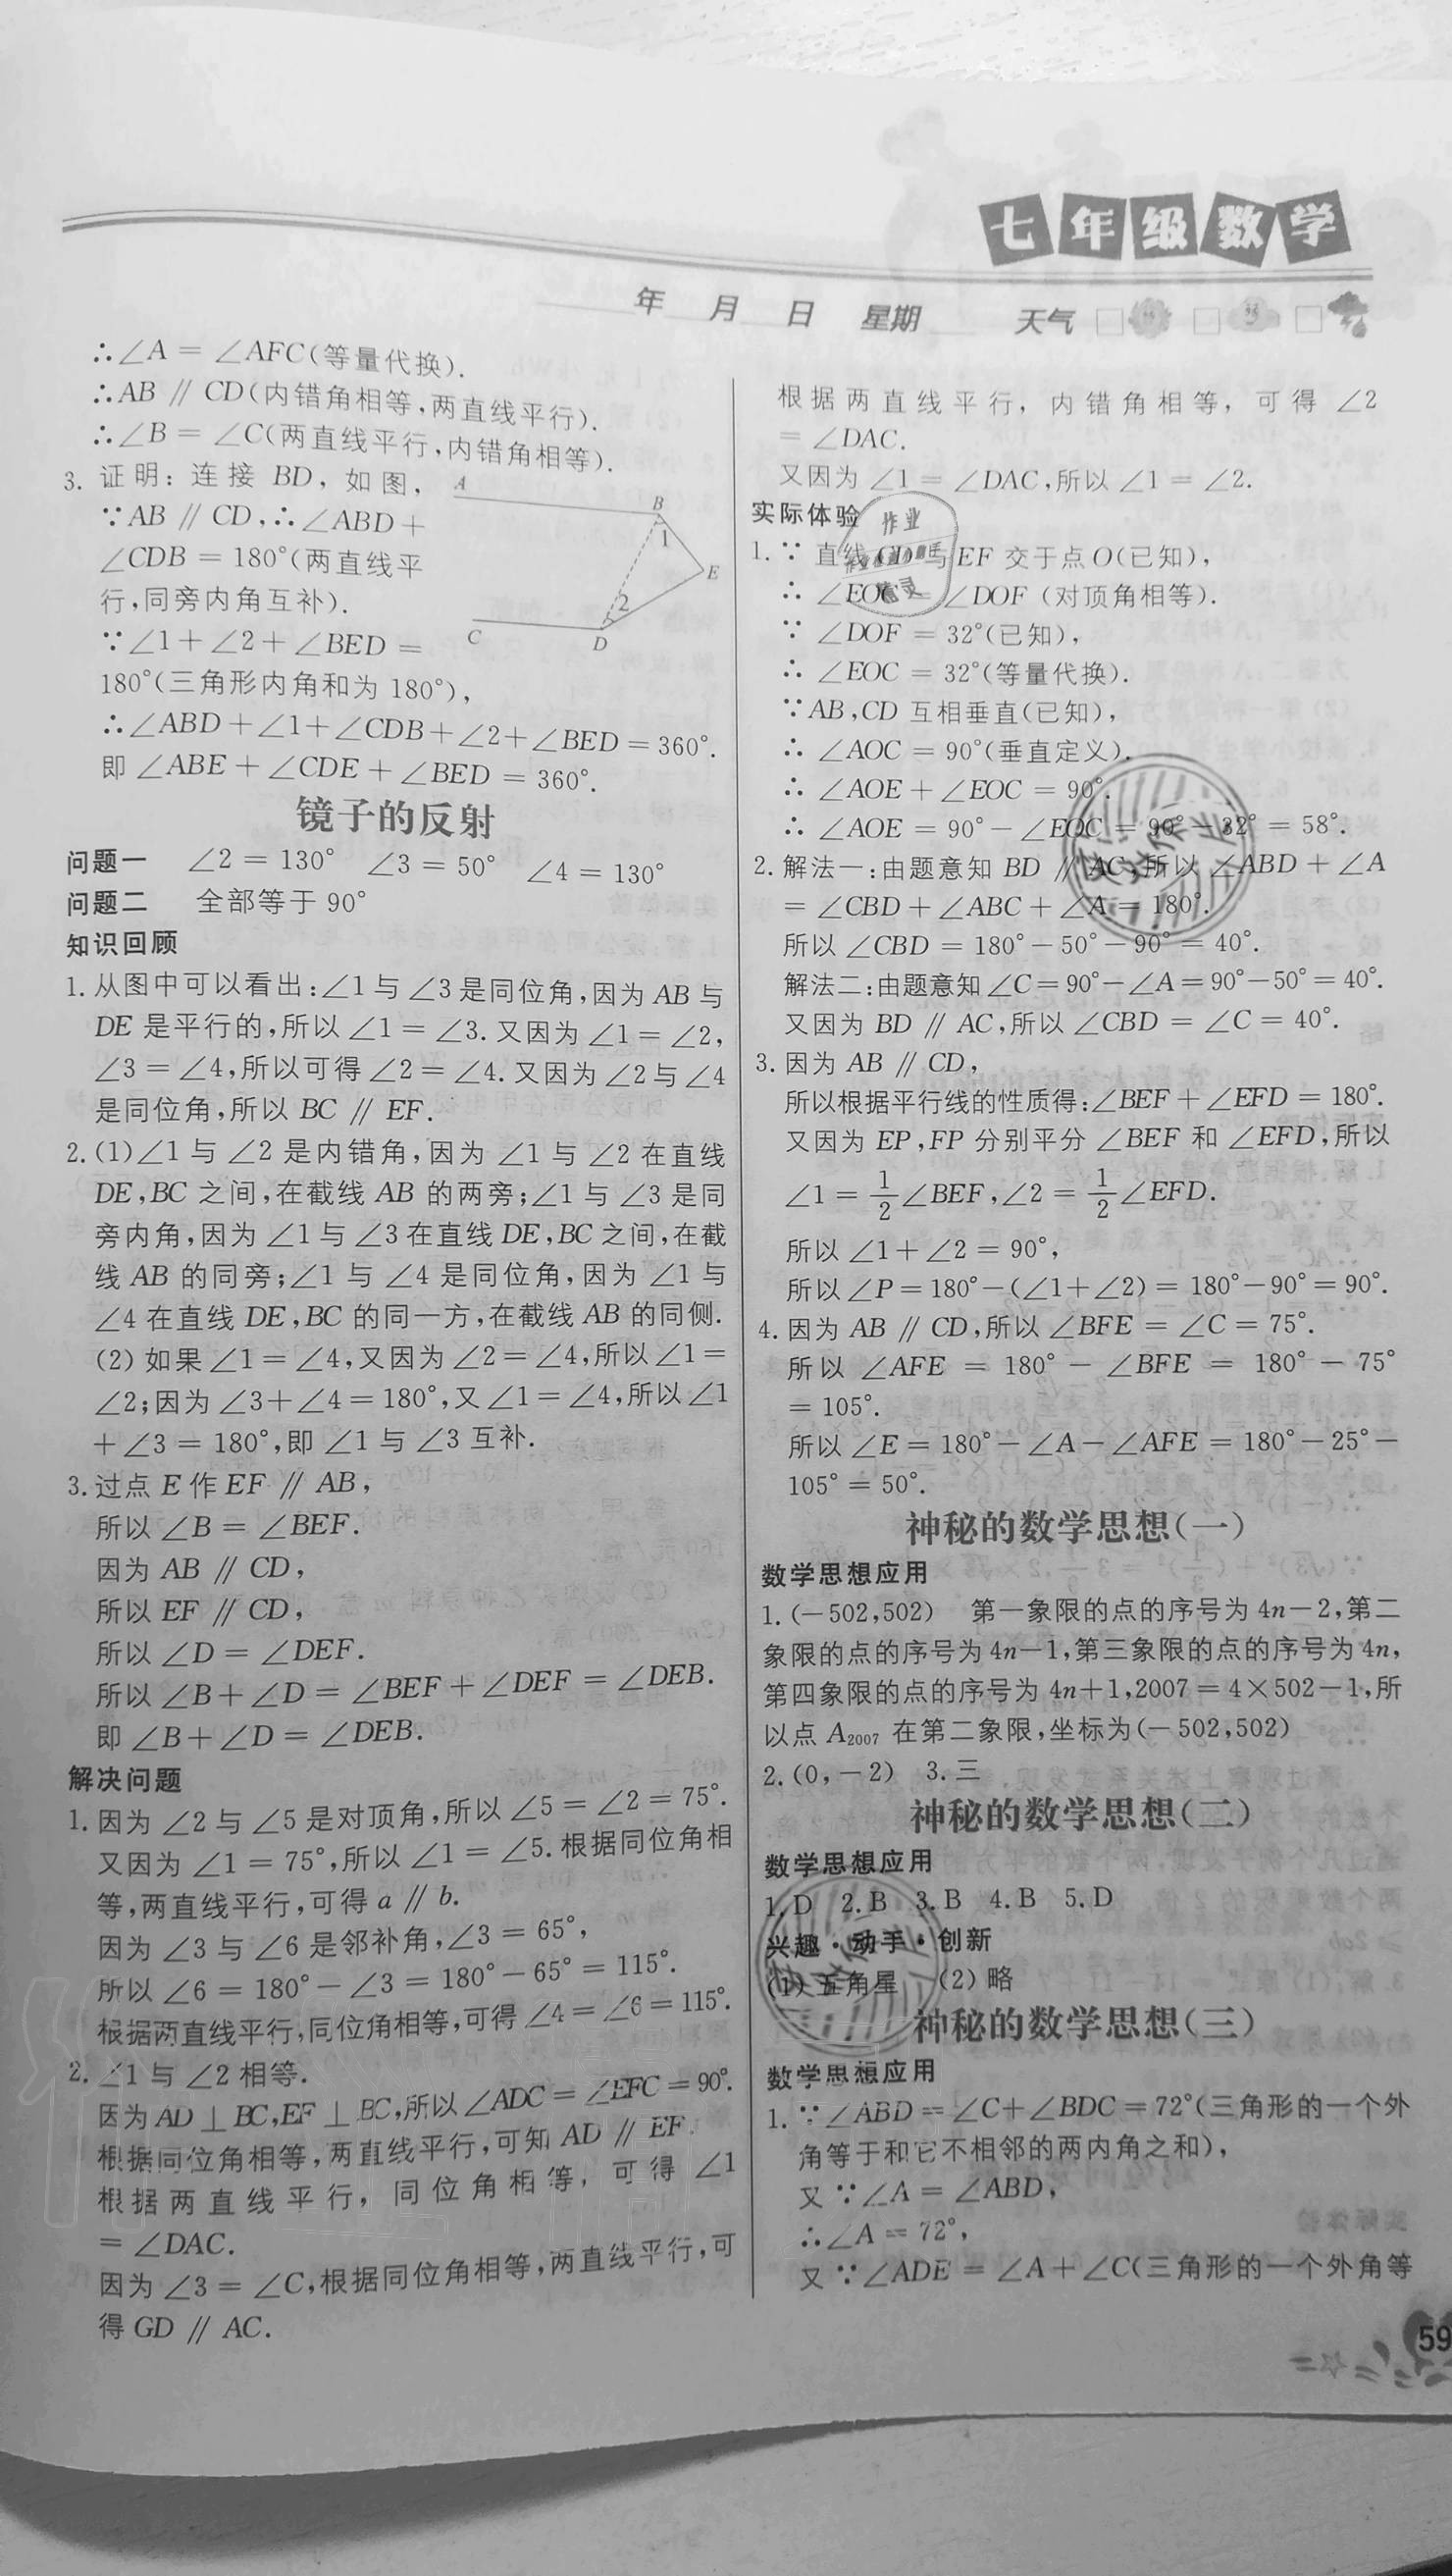 七年级数学
年 月 日 星期 天气
∴∠A=∠AFC(等量代换).
∴AB∥CD(内错角相等,两直线平行).
∴∠B=∠C(两直线平行,内错角相等).
3. 证明:连接 BD,如图,
∵AB∥CD,∴∠ABD+
∠CDB=180°(两直线平
行,同旁内角互补).
∵∠1+∠2+∠BED=
180°(三角形内角和为 180°),
∴∠ABD+∠1+∠CDB+∠2+∠BED=360°.
即∠ABE+∠CDE+∠BED=360°.
A
B
1
E
2
C
D
镜子的反射
问题一 ∠2=130° ∠3=50° ∠4=130°
问题二 全部等于 90°
知识回顾
1. 从图中可以看出:∠1与∠3是同位角,因为 AB 与
DE 是平行的,所以∠1=∠3.又因为∠1=∠2,
∠3=∠4,所以可得∠2=∠4.又因为∠2与∠4
是同位角,所以 BC∥EF.
2. (1)∠1与∠2是内错角,因为∠1与∠2在直线
DE,BC 之间,在截线 AB 的两旁;∠1与∠3是同
旁内角,因为∠1与∠3在直线 DE,BC 之间,在截
线 AB 的同旁;∠1与∠4是同位角,因为∠1与
∠4在直线 DE,BC 的同一方,在截线 AB 的同侧.
(2)如果∠1=∠4,又因为∠2=∠4,所以∠1=
∠2;因为∠3+∠4=180°,又∠1=∠4,所以∠1
+∠3=180°,即∠1与∠3互补.
3. 过点 E 作 EF∥AB,
所以∠B=∠BEF.
因为 AB∥CD,
所以 EF∥CD,
所以∠D=∠DEF.
所以∠B+∠D=∠BEF+∠DEF=∠DEB.
即∠B+∠D=∠DEB.
解决问题
1. 因为∠2与∠5是对顶角,所以∠5=∠2=75°.
又因为∠1=75°,所以∠1=∠5.根据同位角相
等,两直线平行,可得 a∥b.
因为∠3与∠6是邻补角,∠3=65°,
所以∠6=180°-∠3=180°-65°=115°.
根据两直线平行,同位角相等,可得∠4=∠6=115°.
2. ∠1与∠2相等.
因为AD⊥BC,EF⊥BC,所以∠ADC=∠EFC=90°.
根据同位角相等,两直线平行,可知 AD∥EF.
根据两直线平行,同位角相等,可得∠1
=∠DAC.
因为∠3=∠C,根据同位角相等,两直线平行,可
得 GD∥AC.
根据两直线平行,内错角相等,可得∠2
=∠DAC.
又因为∠1=∠DAC,所以∠1=∠2.
实际体验
1. ∵直线 CD 与 EF 交于点 O(已知),
∴∠EOC=∠DOF(对顶角相等).
∵∠DOF=32°(已知),
∴∠EOC=32°(等量代换).
∵AB,CD 互相垂直(已知),
∴∠AOC=90°(垂直定义).
∴∠AOE+∠EOC=90°.
∴∠AOE=90°-∠EOC=90°-32°=58°.
2. 解法一:由题意知 BD∥AC,所以∠ABD+∠A
=∠CBD+∠ABC+∠A=180°.
所以∠CBD=180°-50°-90°=40°.
解法二:由题意知∠C=90°-∠A=90°-50°=40°.
又因为 BD∥AC,所以∠CBD=∠C=40°.
3. 因为 AB∥CD,
所以根据平行线的性质得:∠BEF+∠EFD=180°.
又因为 EP,FP 分别平分∠BEF 和∠EFD,所以
∠1=1/2∠BEF,∠2=1/2∠EFD.
所以∠1+∠2=90°,
所以∠P=180°-(∠1+∠2)=180°-90°=90°.
4. 因为 AB∥CD,所以∠BFE=∠C=75°.
所以∠AFE=180°-∠BFE=180°-75°
=105°.
所以∠E=180°-∠A-∠AFE=180°-25°-
105°=50°.
神秘的数学思想(一)
数学思想应用
1. (-502,502) 第一象限的点的序号为 4n-2,第二
象限的点的序号为 4n-1,第三象限的点的序号为 4n,
第四象限的点的序号为 4n+1,2007=4×502-1,所
以点 A₂₀₀₇ 在第二象限,坐标为(-502,502)
2. (0,-2) 3. 三
神秘的数学思想(二)
数学思想应用
1. D 2. B 3. B 4. B 5. D
兴趣·动手·创新
(1)五角星 (2)略
神秘的数学思想(三)
数学思想应用
1. ∵∠ABD=∠C+∠BDC=72°(三角形的一个外
角等于和它不相邻的两内角之和),
又∵∠A=∠ABD,
∴∠A=72°,
又∵∠ADE=∠A+∠C(三角形的一个外角等
59